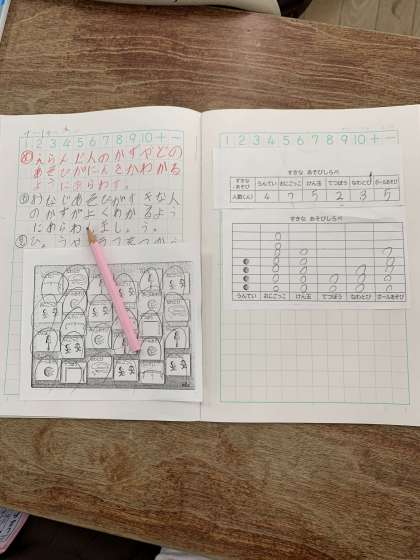 1 2 3 4 5 6 7 8 9 10 + −
えらんだ人のかずやどの
あそびがにんきかわかる
ようにあらわす。
おなじあそびがすきな人
のかずがよくわかるよう
にあらわしましょう。
1 2 3 4 5 6 7 8 9 10 + −
すきな あそびしらべ
すきなあそび うんてい おにごっこ けん玉 てつぼう なわとび ボールあそび
人数(にん) 4 7 5 2 3 5
すきな あそびしらべ
うんてい おにごっこ けん玉 てつぼう なわとび ボールあそび